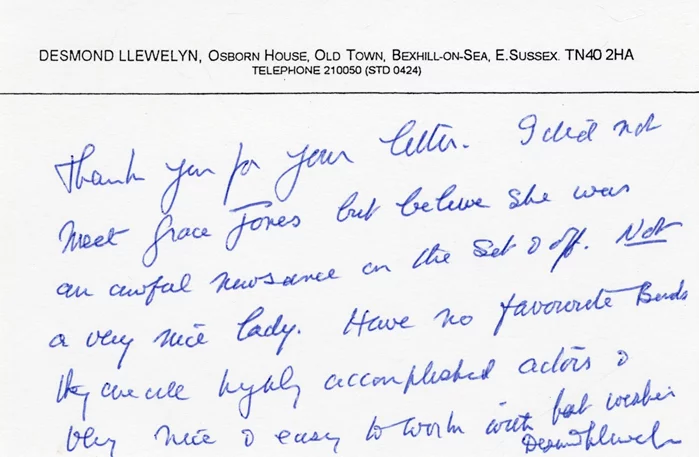 DESMOND LLEWELYN, OSBORN HOUSE, OLD TOWN, BEXHILL-ON-SEA, E.SUSSEX. TN40 2HA
TELEPHONE 210050 (STD 0424)
Thank you for your letter. I did not
meet Grace Jones but believe she was
an awful newsance on the set & off. Not
a very nice lady. Have no favourite Bonds
they are all highly accomplished actors &
very nice & easy to work with best wishes
Desmond Llewelyn